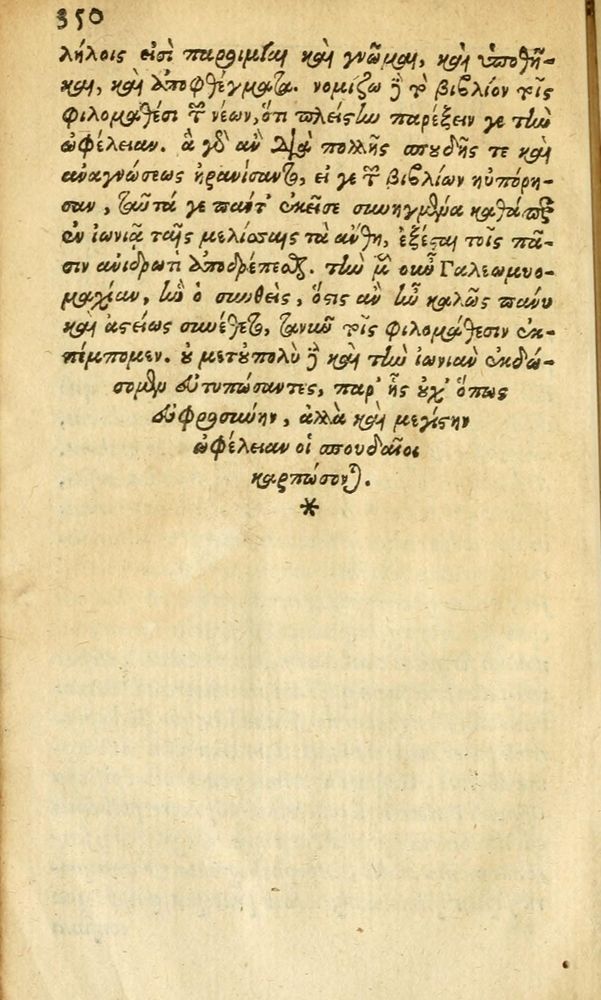 350
λήλοις εἰσὶ παροιμίαι καὶ γνῶμαι, καὶ ὑποθῆ-
και, καὶ ἀποφθέγματα. νομίζω δὲ τὸ βιβλίον τοῖς
φιλομαθέσι τῶν νέων, ὅτι πλείστην παρέξειν γε τὴν
ὠφέλειαν. ἃ γὰρ ἂν διὰ πολλῆς σπουδῆς τε καὶ
ἀναγνώσεως ἠρανίσαντο, εἴ γε τῶν βιβλίων ηὐπόρη-
σαν, ταῦτά γε πάντ' ἐκεῖσε συνηγμένα καθάπερ
ἐν ἰωνιᾷ ταῖς μελίσσαις τὰ ἄνθη, ἐξέσται τοῖς πᾶ-
σιν ἀνιδρωτὶ ἀποδρέπεσθαι. τὴν μὲν οὖν Γαλεωμυο-
μαχίαν, ἣν ὁ συνθεὶς, ὅστις ἂν ἦν καλῶς πάνυ
καὶ ἀστείως συνέθετο, τανῦν τοῖς φιλομάθεσιν ἐκ-
πέμπομεν. οὐ μετὐπολὺ δὲ καὶ τὴν ἰωνιὰν ἐκδώ-
σομεν εὐτυπώσαντες, παρ' ἧς οὐχ' ὅπως
εὐφροσύνην, ἀλλὰ καὶ μεγίστην
ὠφέλειαν οἱ σπουδαῖοι
καρπώσονται.
*